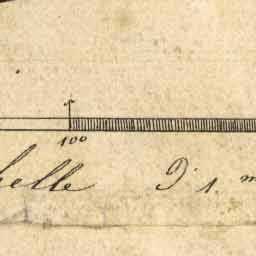 100
helle D' 1. m